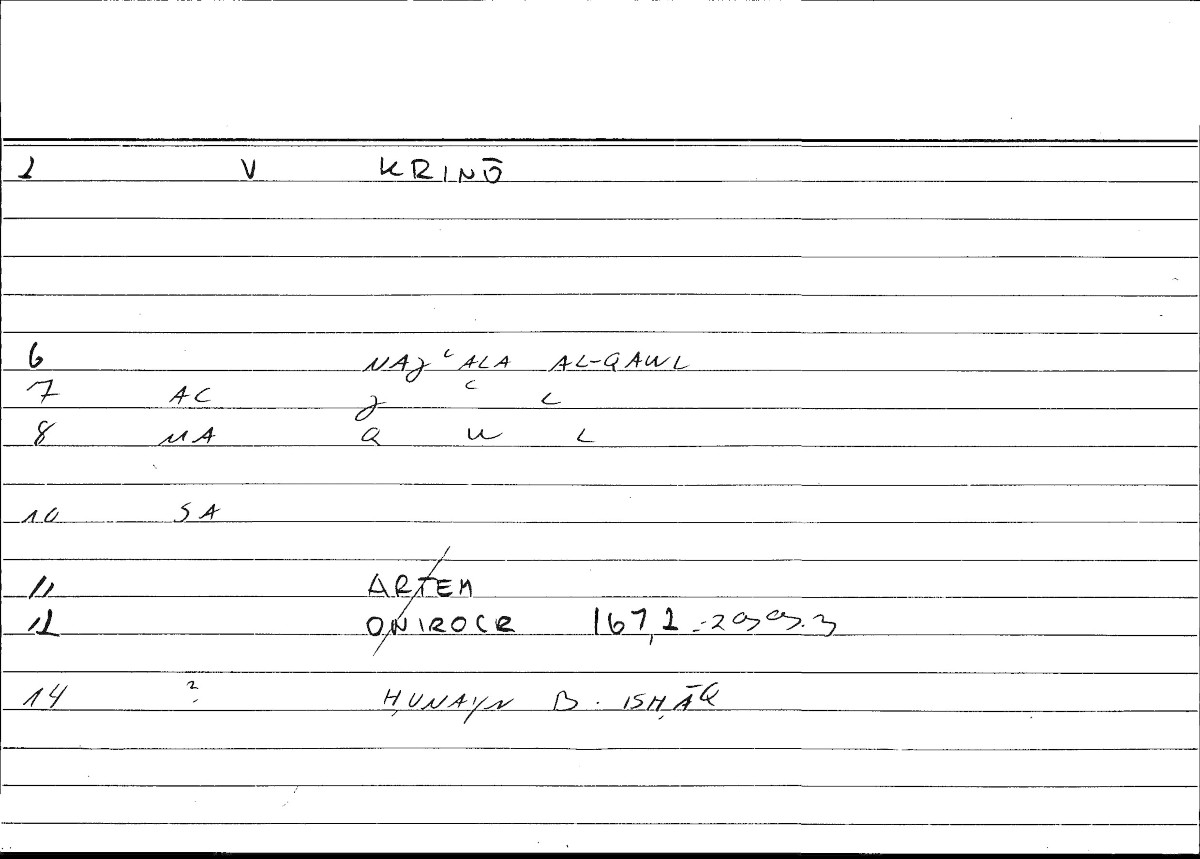 1 V KRINŌ
6 NAJ ʿALA AL-QAWL
7 AC J ʿ L
8 MA Q W L
10 SA
11 ARTEM
12 ONIROCR 167,1
14 ? ḤUNAYN B. ISḤĀQ